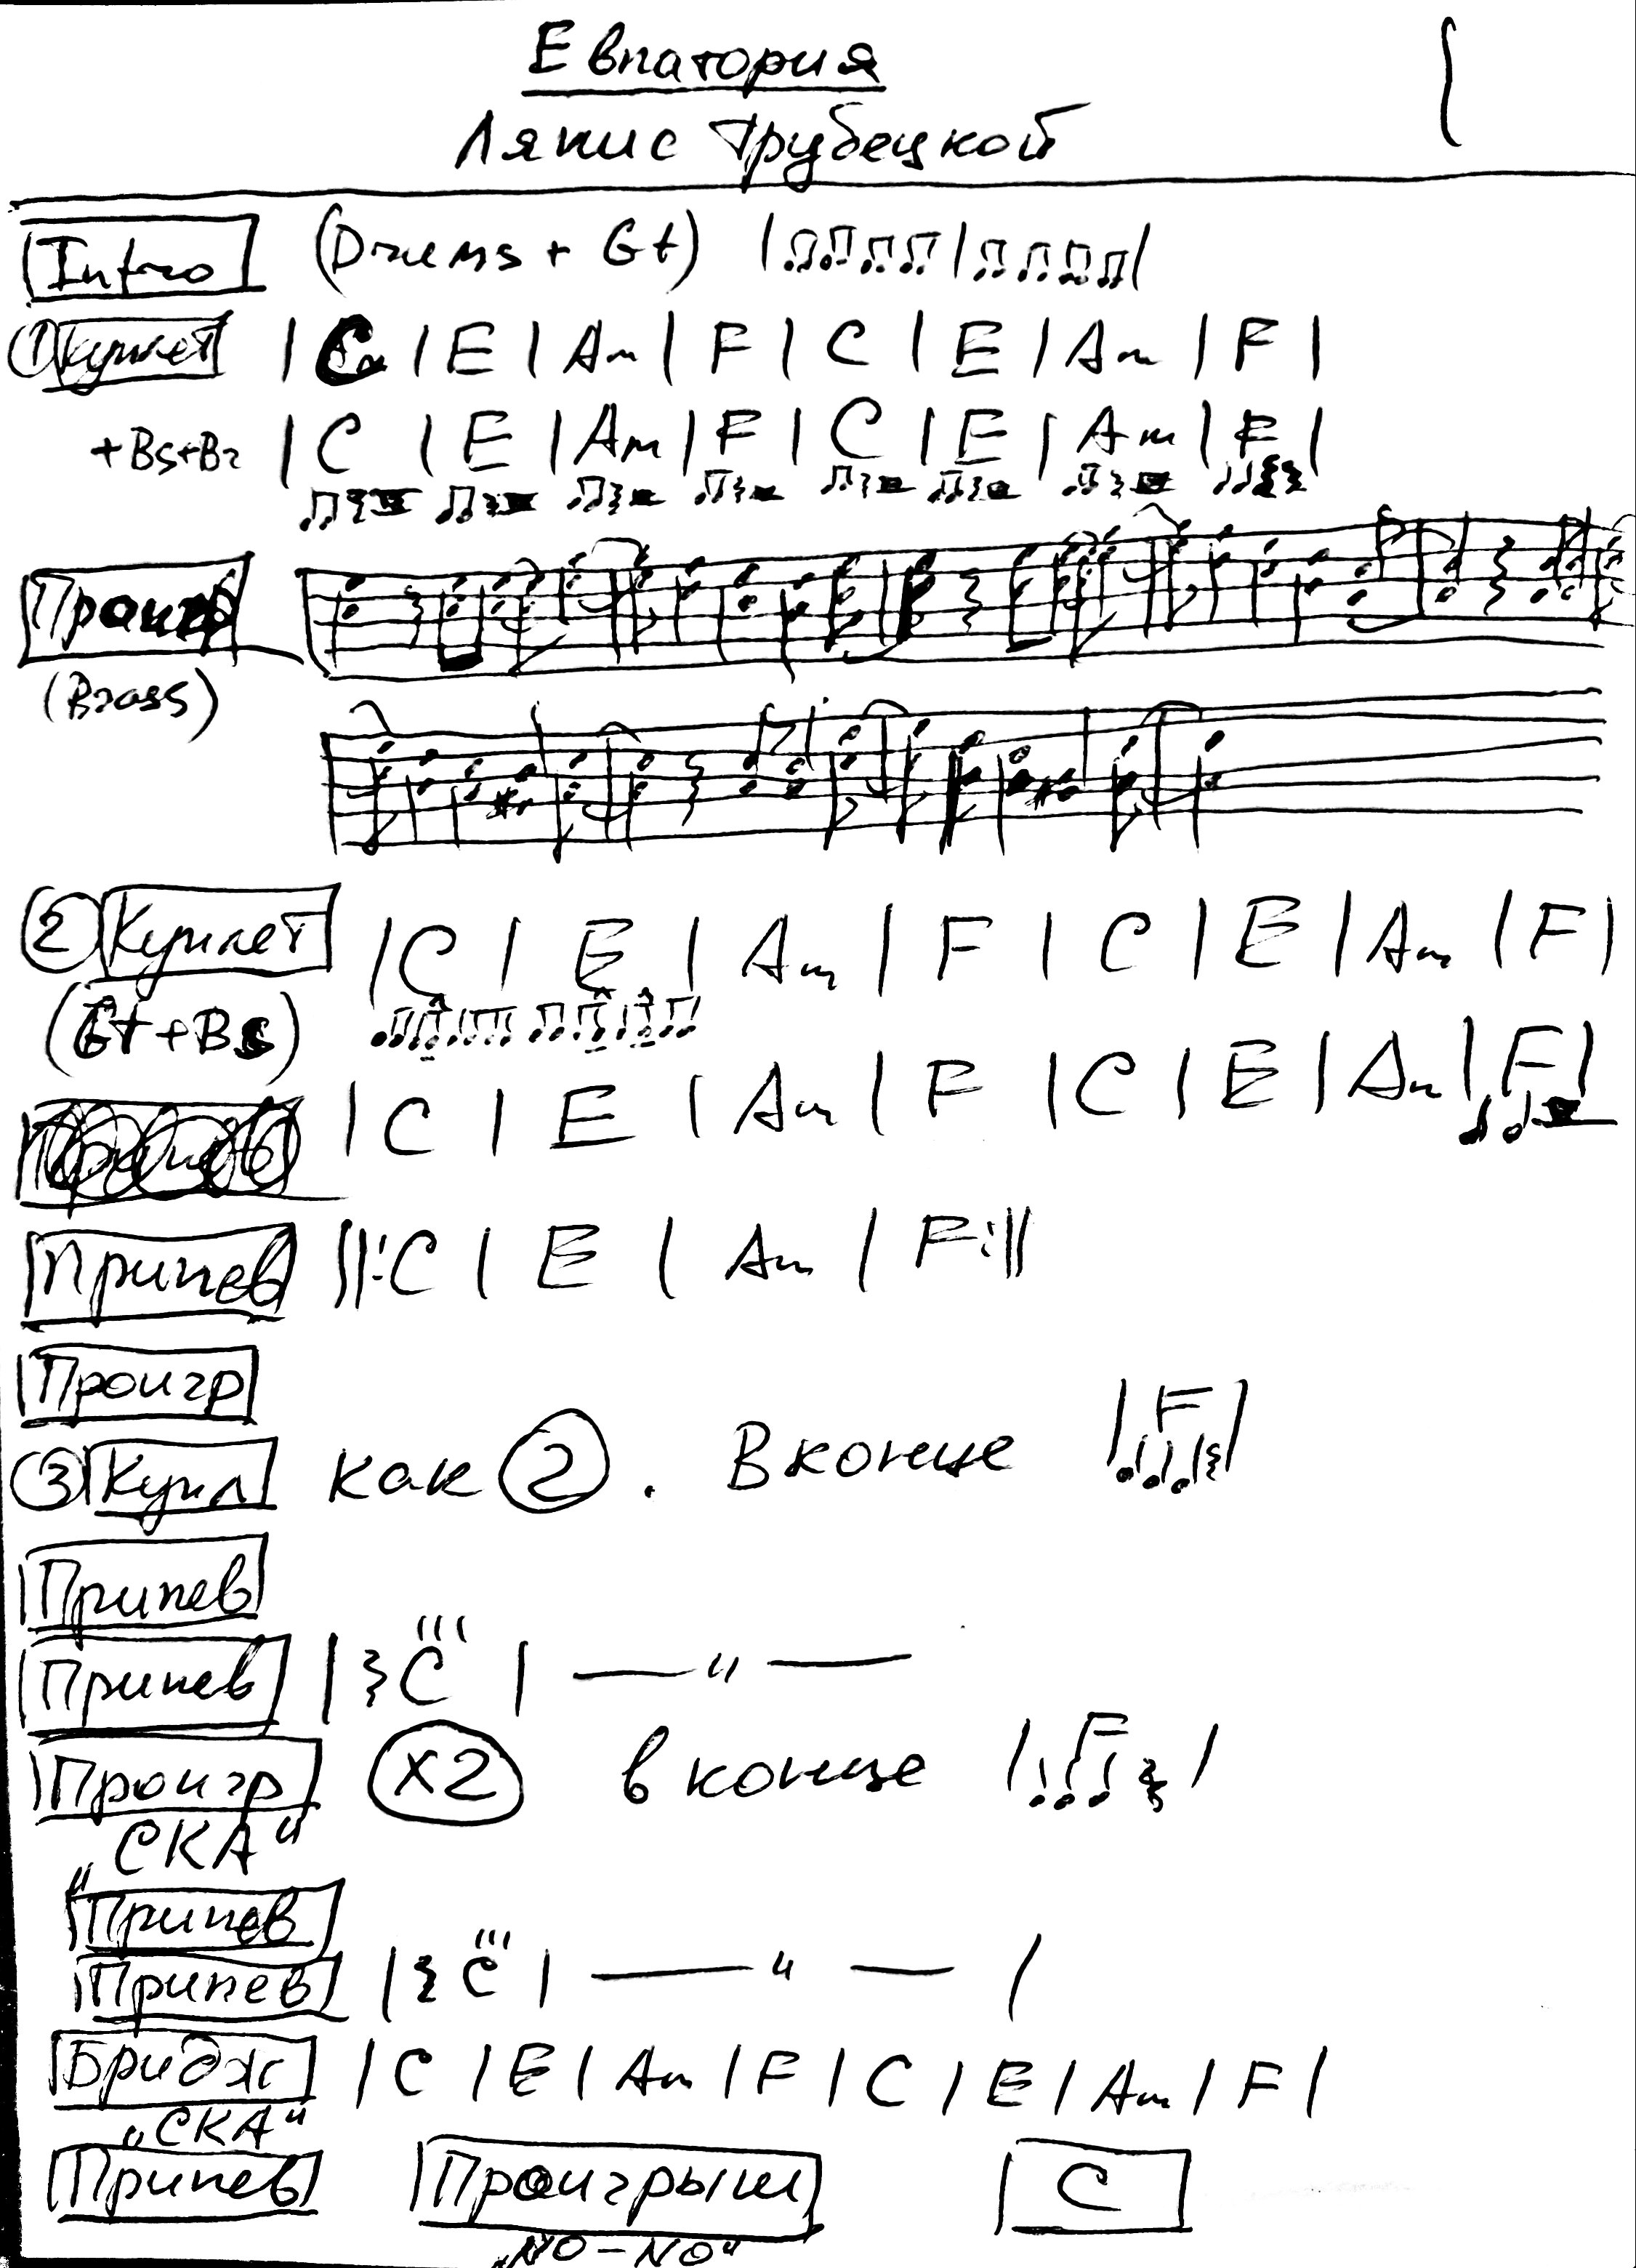 Евпатория
Ляпис Трубецкой
Intro (Drums + Gt)
① Куплет | C | E | Am | F | C | E | Am | F |
+Bs+Br | C | E | Am | F | C | E | Am | F |
Проигр
(Brass)
② Куплет | C | E | Am | F | C | E | Am | F |
(Gt+Bs)
| C | E | Am | F | C | E | Am | F |
Припев ||: C | E | Am | F :||
Проигр
③ Купл как ② . В конце | F |
Припев
Припев | C | — " —
Проигр x2 в конце | F |
„СКА“
Припев
Припев | C | — " — |
Бридж | C | E | Am | F | C | E | Am | F |
„СКА“
Припев Проигрыш C
„NO-NO“